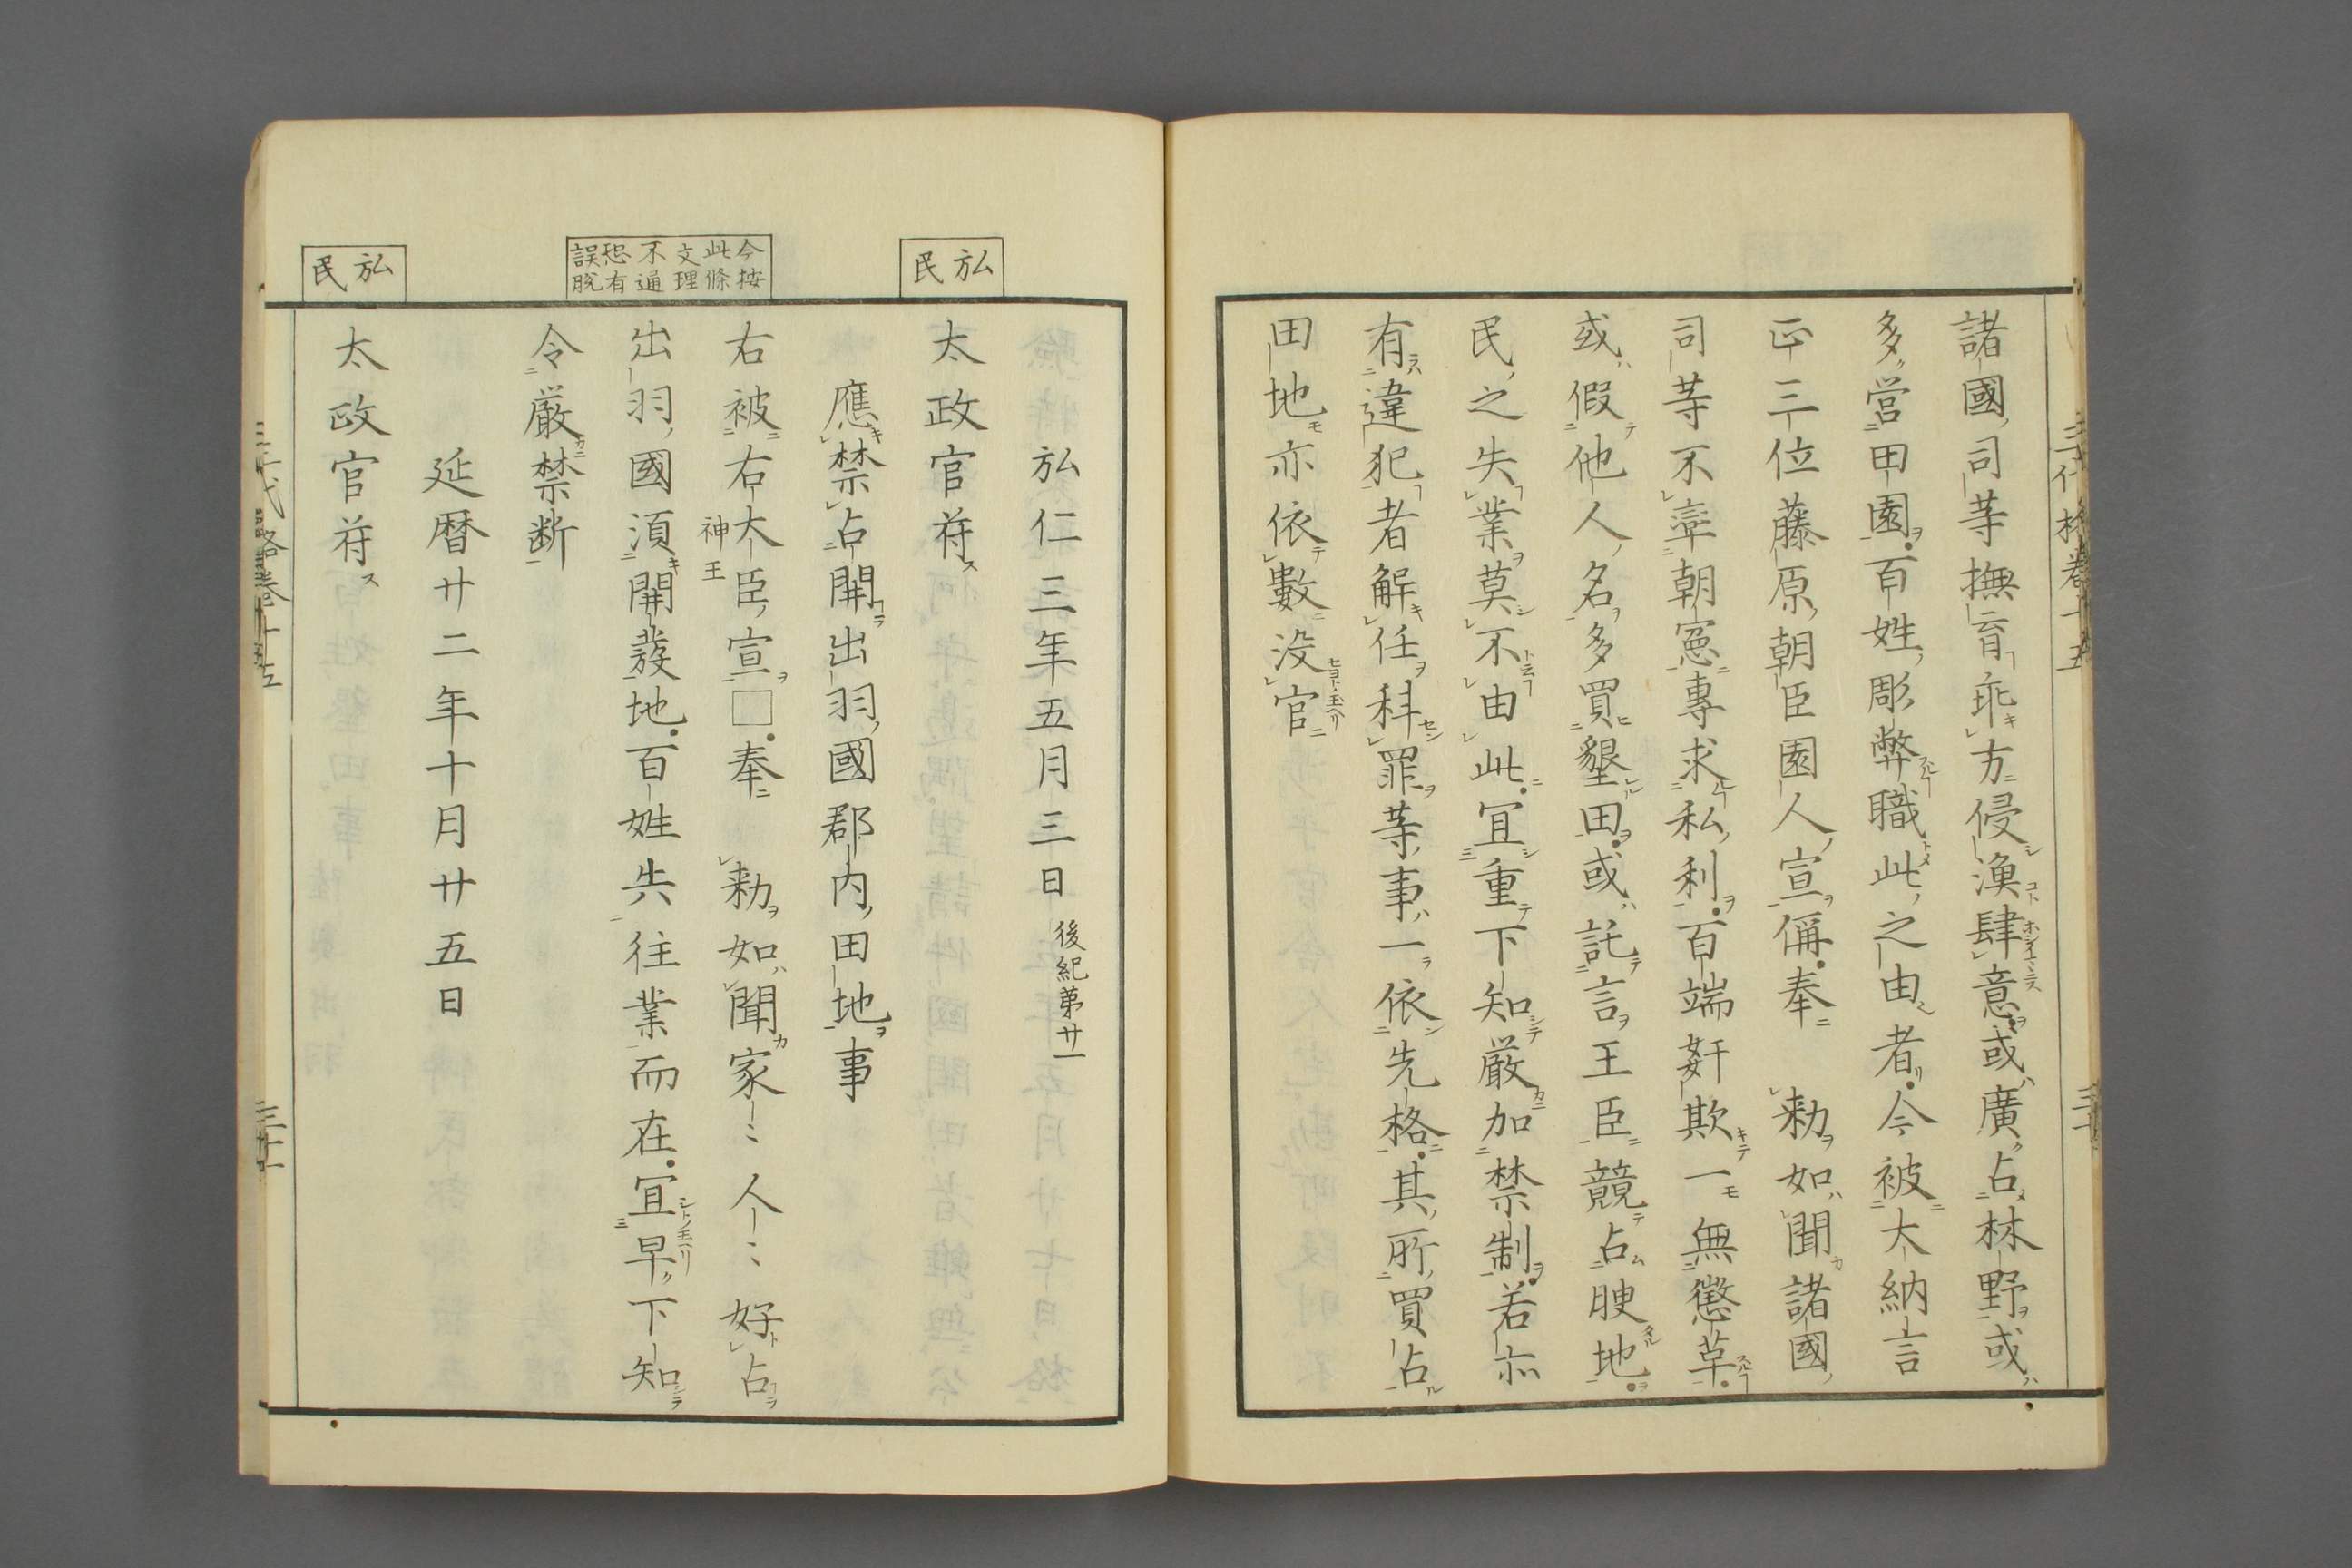 諸國司等撫育乖方侵漁肆意或廣占林野或
多営田園百姓彫弊職此之由者今被大納言
正三位藤原朝臣園人宣偁奉　勅如聞諸國
司等不率朝憲專求私利百端奸欺一無懲革
或假他人名多買墾田或託言王臣競占腴地
民之失業莫不由此宜重下知厳加禁制若亦
有違犯者解任科罪等事一依先格其所買占
田地亦依數没官
弘仁三年五月三日 後紀第廿一
弘民
太政官符
應禁占開出羽國郡内田地事
右被右大臣宣□奉　勅如聞家〻人〻好占
神王
今按此條文理不通恐有誤脱
出羽國須開發地百姓失往業而在宜早下知
令厳禁断
延暦廿二年十月廿五日
弘民
太政官符